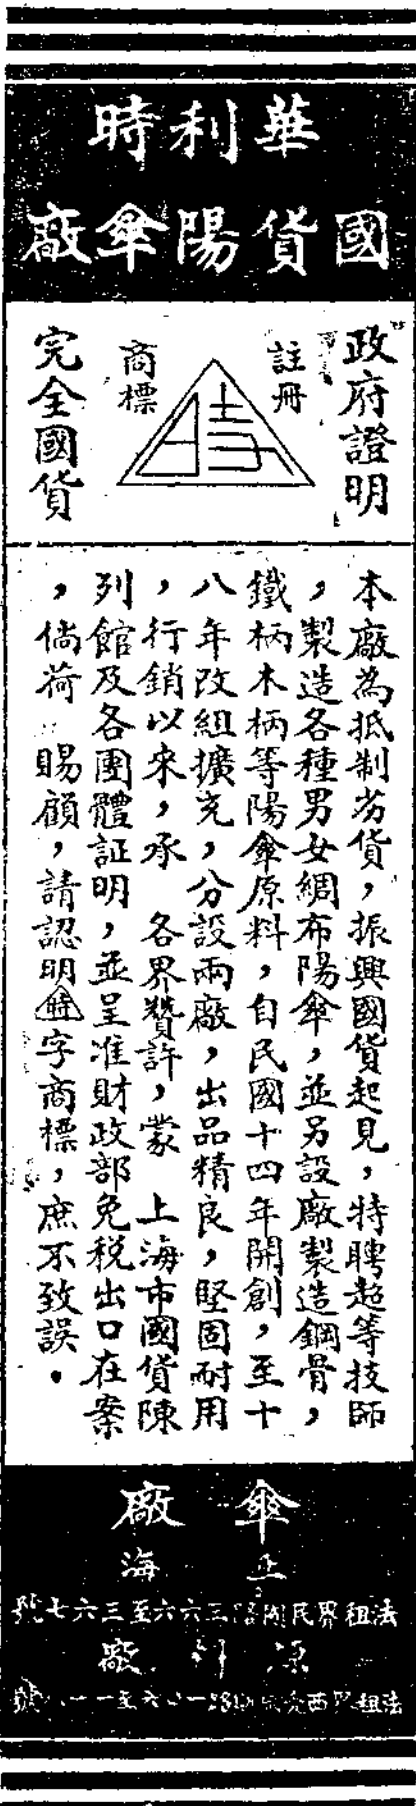 華利時
國貨陽傘廠
政府證明
註冊
時
商標
完全國貨
本廠為抵制劣貨，振興國貨起見，特聘超等技師
，製造各種男女綢布陽傘，並另設廠製造鋼骨，
鐵柄木柄等陽傘原料，自民國十四年開創，至十
八年改組擴充，分設兩廠，出品精良，堅固耐用
，行銷以來，承　各界贊許，蒙　上海市國貨陳
列館及各團體証明，並呈准財政部免稅出口在案
，倘荷　賜顧，請認明時字商標，庶不致誤．
傘廠
上海
法租界民國路三六六至三六七號
原料廠
法租界西